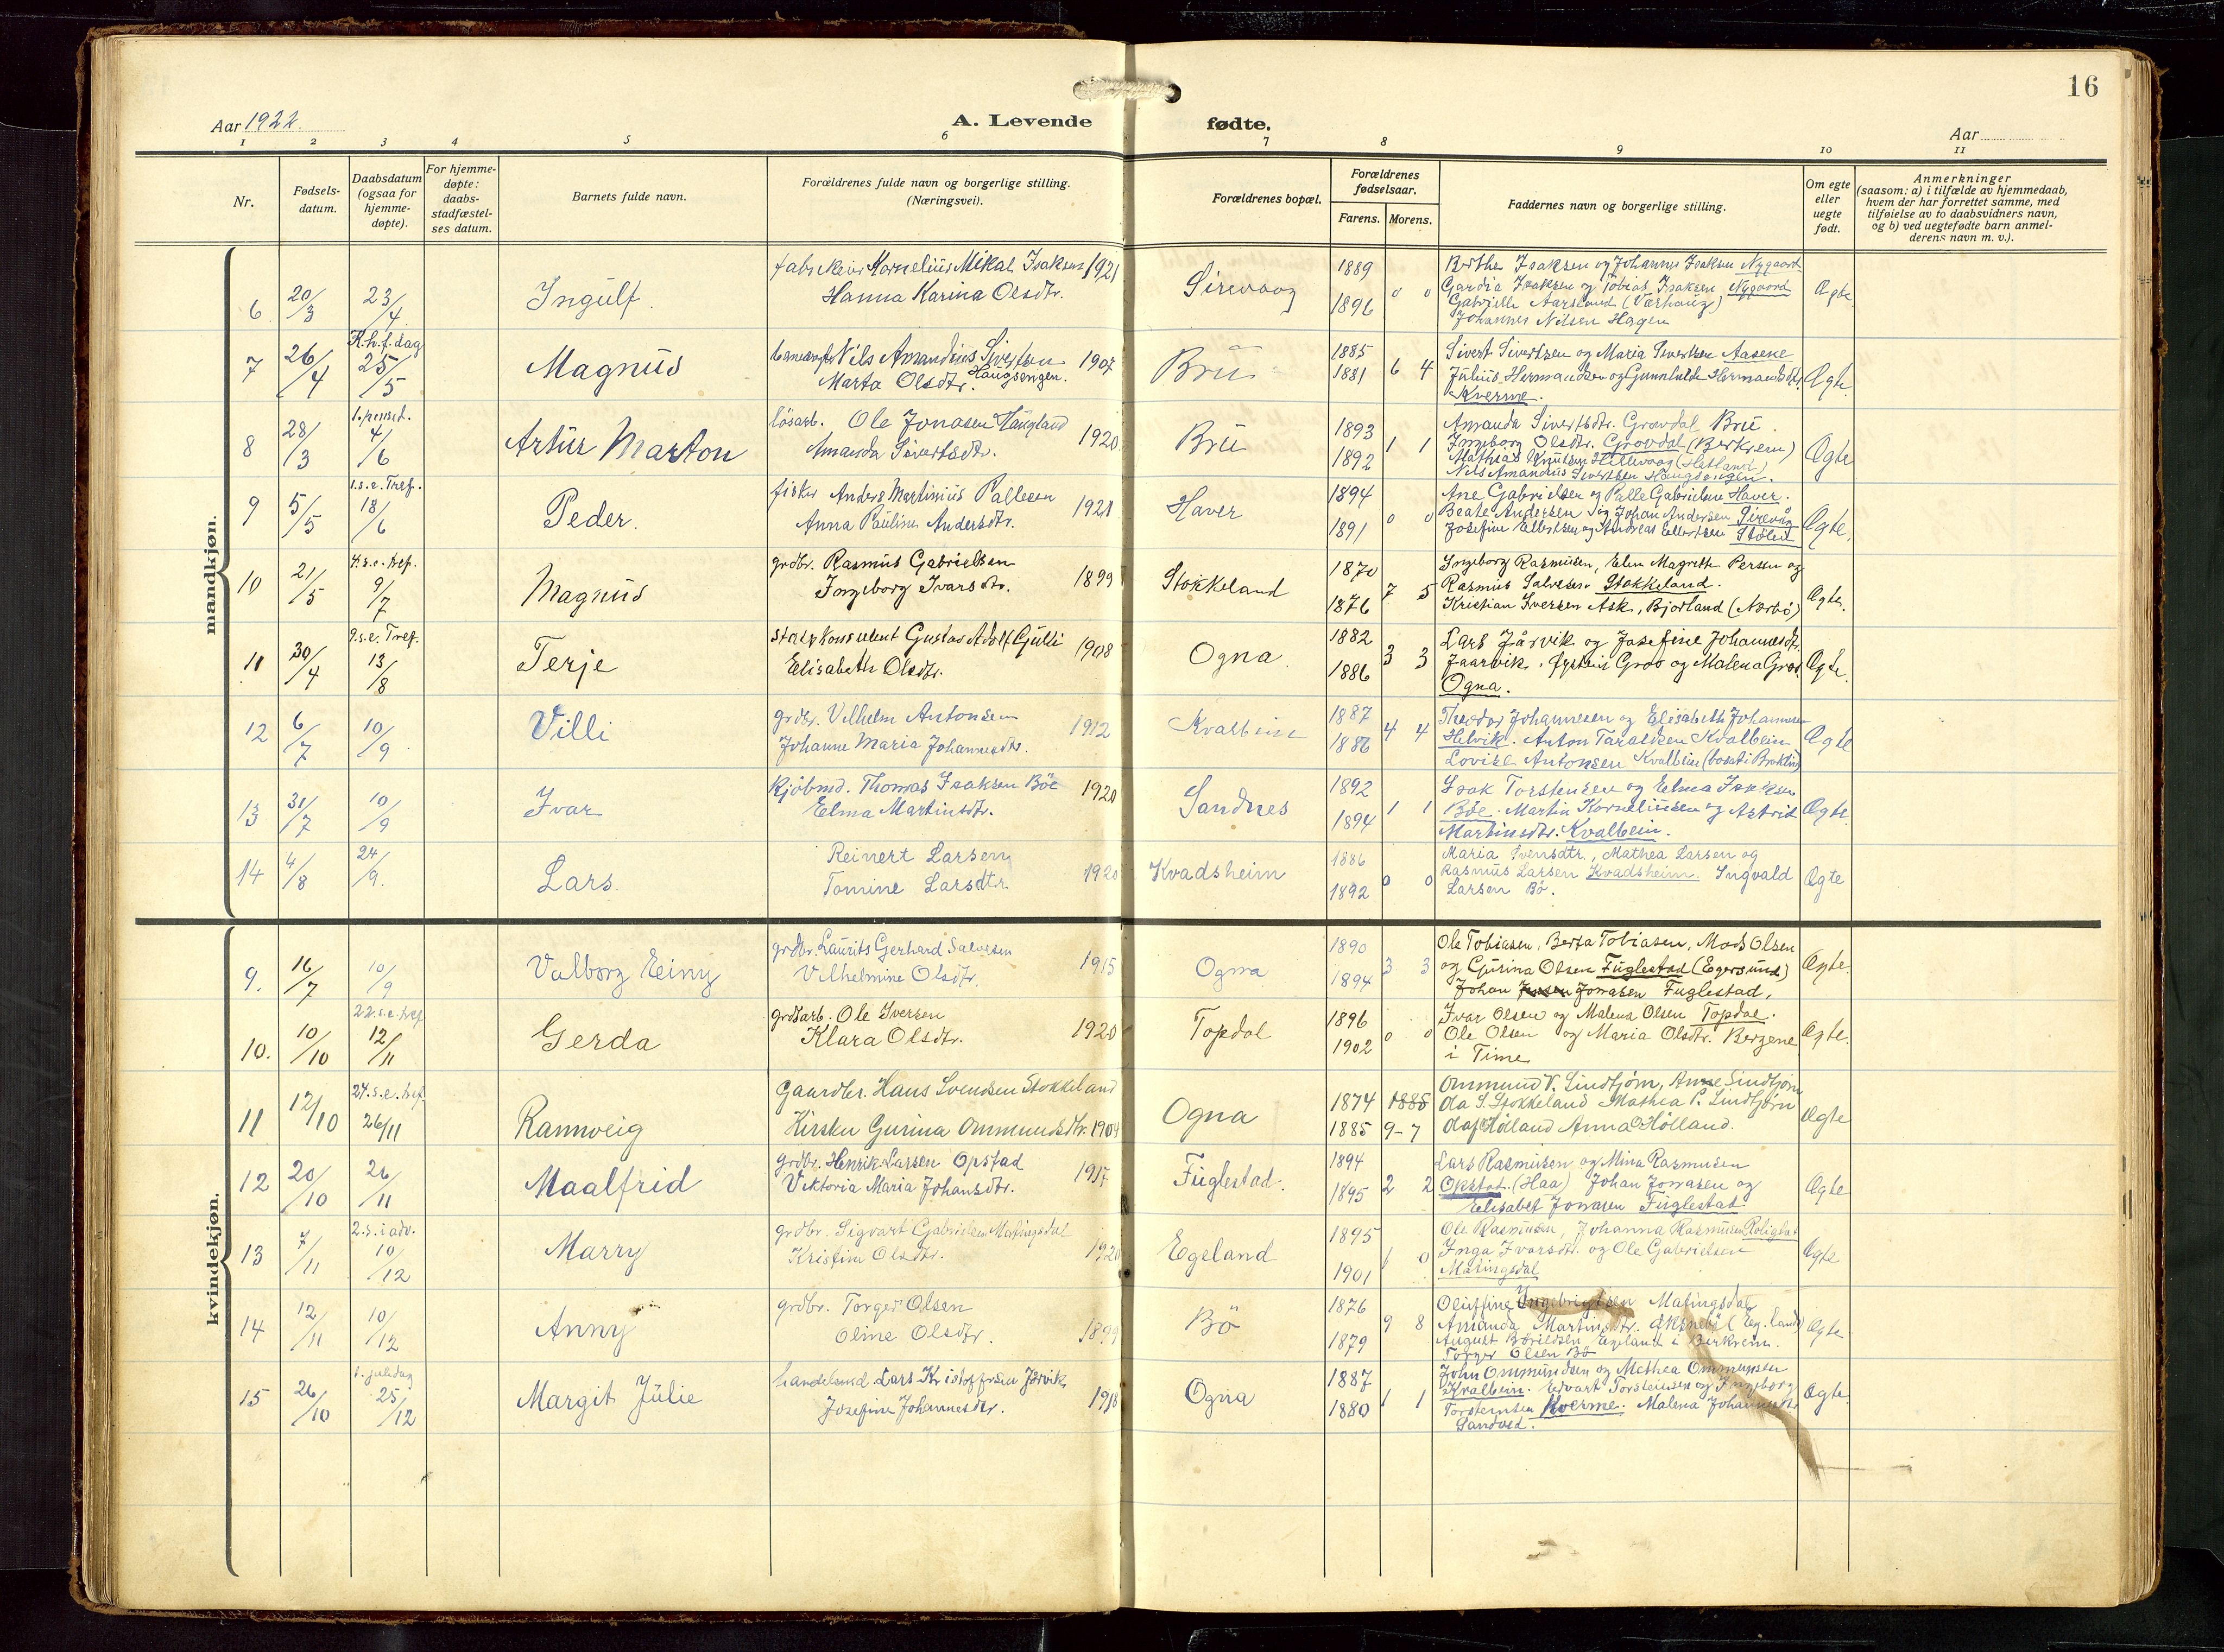 16
Aar 1922.
A. Levende fødte.
Aar
1 2 3 4 5 6 7 8 9 10 11
Nr.
Fødsels-
datum.
Daabsdatum
(ogsaa for
hjemme-
døpte).
For hjemme-
døpte:
daabs-
stadfæstel-
ses datum.
Barnets fulde navn.
Forældrenes fulde navn og borgerlige stilling.
(Næringsvei).
Forældrenes bopæl.
Forældrenes
fødselsaar.
Farens. Morens.
Faddernes navn og borgerlige stilling.
Om egte
eller
uegte
født.
Anmerkninger
(saasom: a) i tilfælde av hjemmedaab,
hvem der har forrettet samme, med
tilføielse av to daabsvidners navn,
og b) ved uegtefødte barn anmel-
derens navn m. v.).
mandkjøn.
6 20/3 23/4 Ingulf.
Kornelius Mikal Isaksen 1921
Hanna Karina Olsdtr.
Sirevaag
1889
1896
0 0
Berthe Isaksen og Johannes Isaksen Nygaard
Gardia Isaksen og Tobias Isaksen Nygaard
Gabrielle Aarsland (Varhaug)
Johannes Nilsen Hagen
Ægte
7 26/4 K.h.f.dag 25/5 Magnus
Nils Amandius Sivertsen 1907
Haugsengen.
Marta Olsdtr.
Bru
1885
1881
6 4
Sivert Sivertsen og Maria Sivertsen Aasene
Julius Hermandsen og Gunnhilde Hermandsdtr.
Kverme.
Ægte.
8 28/3 1. pinsed. 4/6 Artur Marton
løsarb. Ole Jonasen Haugland
Amanda Sivertsdtr. 1920
Bru
1893
1892
1 1
Amanda Sivertsdtr. Gravdal Bru.
Ingeborg Olsdtr. Gravdal (Berkrem)
Mathias Knutsen Hellevaag (Hetland)
Nils Amandius Sivertsen Haugsengen.
Ægte
9 5/5 1.s.e.Tref. 18/6 Peder.
fisker Anders Martinius Pallesen 1921
Anna Pauline Andersdtr.
Haver
1894
1891
0 0
Ane Gabrielsen og Palle Gabrielsen Haver.
Beate Andersen og Johan Andersen Sirevåg
Josefine Ellertsen og Andreas Ellertsen Stølen
Ægte.
10 21/5 4.s.e.tref. 9/7 Magnus
grdbr. Rasmus Gabrielsen
Ingeborg Ivarsdtr. 1899
Stokkeland
1870
1876
7 5
Ingeborg Rasmusen, Elen Magrethe Persen og
Rasmus Salvesen Stokkeland.
Kristian Iversen Ask, Bjorland (Nærbø)
Ægte.
11 30/4 9.s.e.Tref. 13/8 Terje
statskonsulent Gustav Adolf Gjulli 1908
Elisabeth Olsdtr.
Ogna.
1882
1886
3 3
Lars Jårvik og Josefine Johannesdtr.
Jaarvik. Øystein Grøs og Malena Grøs
Ogna.
Ægte.
12 6/7 10/9 Villi
grdbr. Vilhelm Antonsen 1912
Johanne Maria Johannesdtr.
Kvalbein
1887
1886
4 4
Theodor Johannesen og Elisabeth Johannesen
Helvik. Anton Taraldsen Kvalbein
Lovise Antonsen Kvalbein (bosat i Broklin)
Ægte
13 31/7 10/9 Ivar
Kjøbmd. Thomas Isaksen Bøe 1920
Elma Martinsdtr.
Sandnes
1892
1894
1 1
Isak Torstensen og Elena Isaksen
Bøe. Martin Korneliusen og Astrid
Martinsdtr. Kvalbein.
Ægte.
14 4/8 24/9. Lars.
Reinert Larsen
Tomine Larsdtr. 1920
Kvadsheim
1886
1892
0 0
Maria Svensdtr., Mathea Larsen og
Rasmus Larsen Kvadsheim. Ingvald
Larsen Bø.
Ægte
kvindekjøn.
9. 16/7 10/9 Valborg Einy
grdbr. Laurits Gerhard Salvesen
Vilhelmine Olsdtr. 1915
Ogna
1890
1894
3 3
Ole Tobiasen, Berta Tobiasen, Mads Olsen
og Gurina Olsen Fuglestad (Egersund)
Johan Jonasen Fuglestad.
Ægte.
10. 10/10 22.s.e.tref 12/11 Gerda
grdsarb. Ole Iversen
Klara Olsdtr. 1920
Topdal
1896
1902
0 0
Ivar Olsen og Malena Olsen Topdal.
Ole Olsen og Maria Olsdtr. Bergene
i Time
Ægte.
11 12/10 24.s.e.tref. 26/11 Rannveig
Gaardbr. Hans Svendsen Stokkeland
Kirsten Gurina Ommundsdtr. 1904
Ogna
1874 1885
1885 9-7
Ommund V. Lindtjørn, Anne Lindtjørn
Ola S. Stokkeland Mathea P. Lindtjørn
Olaf Hølland Anna Hølland.
Ægte
12 20/10 26/11 Maalfrid
grdbr. Henrik Larsen Opstad
Viktoria Maria Johansdtr. 1917
Fuglestad.
1894
1895
2 2
Lars Rasmusen og Mina Rasmusen
Opstad. (Haa) Johan Jonasen og
Elisabet Jonasen Fuglestad
Ægte
13 7/11 2.s.i adv. 10/12 Marry
grdbr. Sigvart Gabrielsen Matingsdal
Kristine Olsdtr. 1920
Egeland
1895
1901
1 0
Ole Rasmusen, Johanna Rasmusen Roligstad
Inga Ivarsdtr. og Ole Gabrielsen
Matingsdal
Ægte
14 12/11 10/12 Anny
grdbr. Torger Olsen
Oline Olsdtr. 1899
Bø
1876
1879
9 8
Oluffine Ingebrigtsen Matingsdal
Amanda Martinsdtr. Øksnebøl (Eg. land)
August Egeland i Berkrem.
Torger Olsen Bø
Ægte
15 26/10 1. juledag 25/12 Margit Julie
handelsmd Lars Kristoffersen Jårvik
Josefine Johannesdtr. 1918
Ogna
1887
1880
1 1
John Ommundsen og Mathea Ommundsen
Kvalbein. Edvart Torsteinsen og Ingeborg
Torsteinsen Kverme. Malena Johannesdtr.
Sandved.
Ægte.